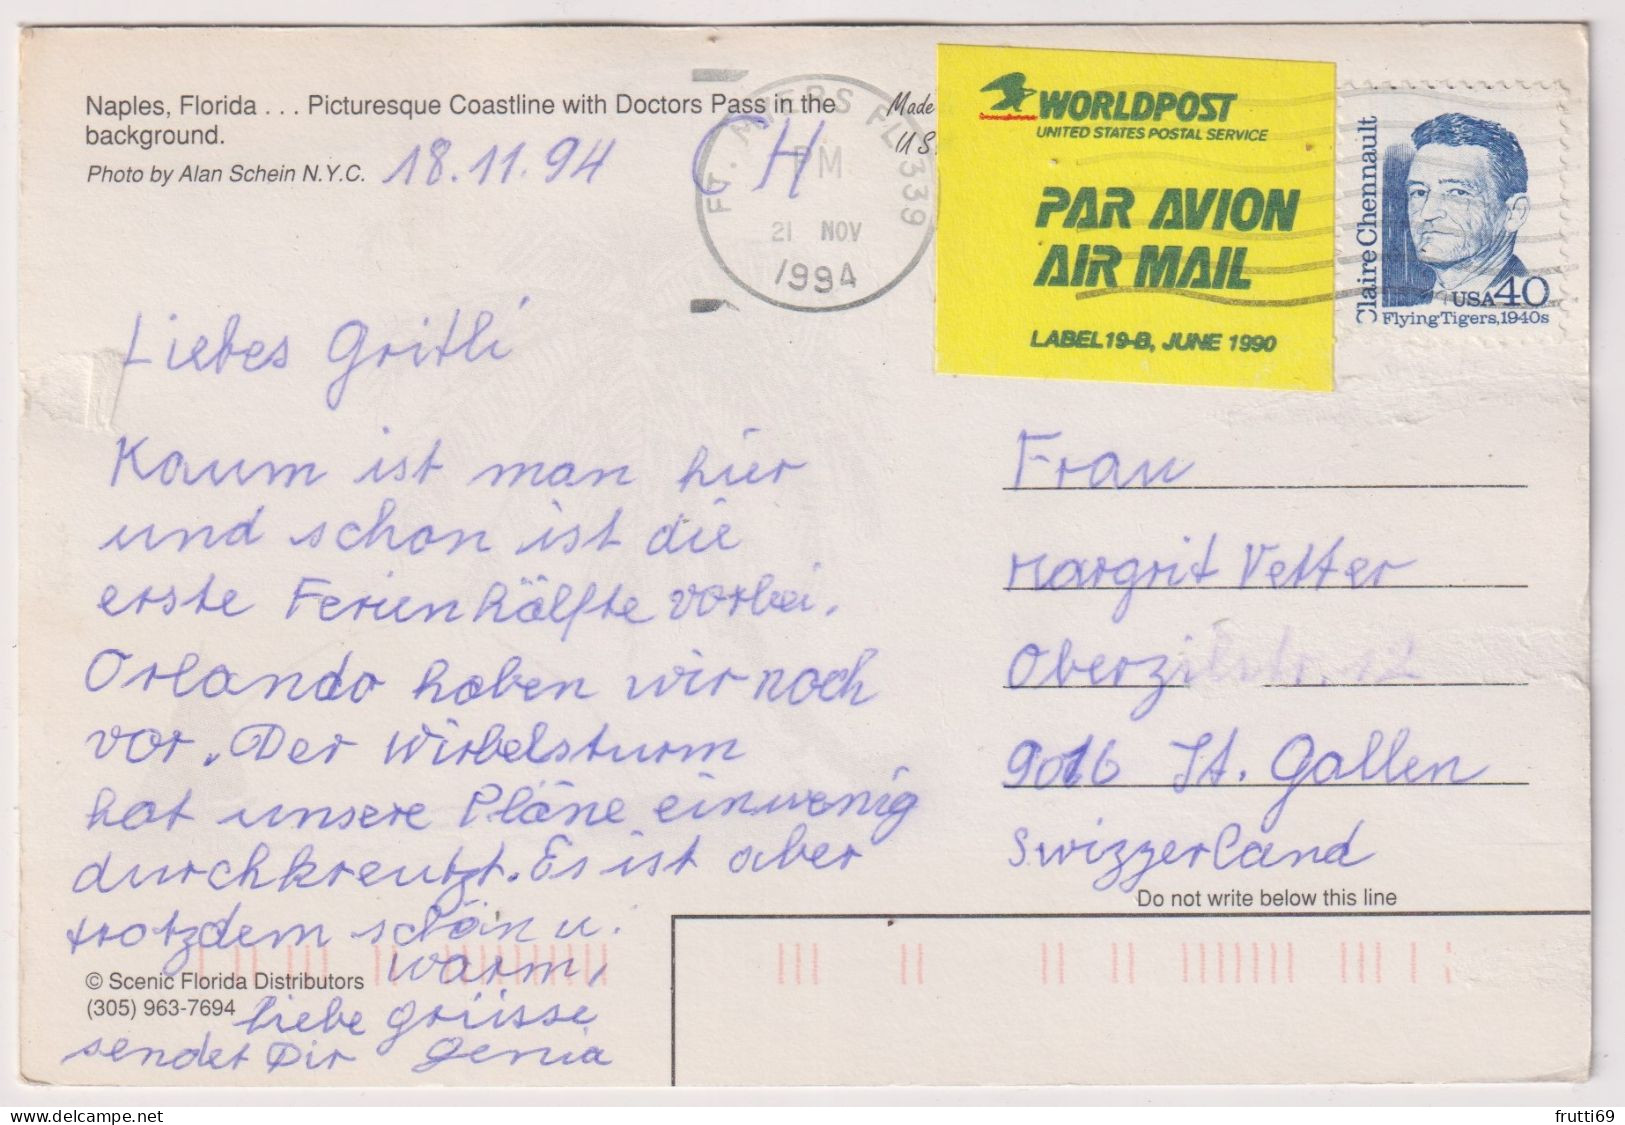 Naples, Florida . . . Picturesque Coastline with Doctors Pass in the
background.
Photo by Alan Schein N.Y.C.
18.11.94
CH
FT. MYERS FL 339
PM
21 NOV
1994
Made
US
WORLDPOST
UNITED STATES POSTAL SERVICE
PAR AVION
AIR MAIL
LABEL 19-B, JUNE 1990
Claire Chennault
USA 40
Flying Tigers, 1940s
Liebes Gritli
Kaum ist man hier
und schon ist die
erste Ferienhälfte vorbei.
Orlando haben wir noch
vor. Der Wirbelsturm
hat unsere Pläne einwenig
durchkreutzt. Es ist aber
trotzdem schön u.
warm,
liebe Grüsse
sendet Dir Xenia
Frau
Margrit Vetter
Oberzilstr. 12
9016 St. Gallen
Swizzerland
Do not write below this line
© Scenic Florida Distributors
(305) 963-7694
frutti69